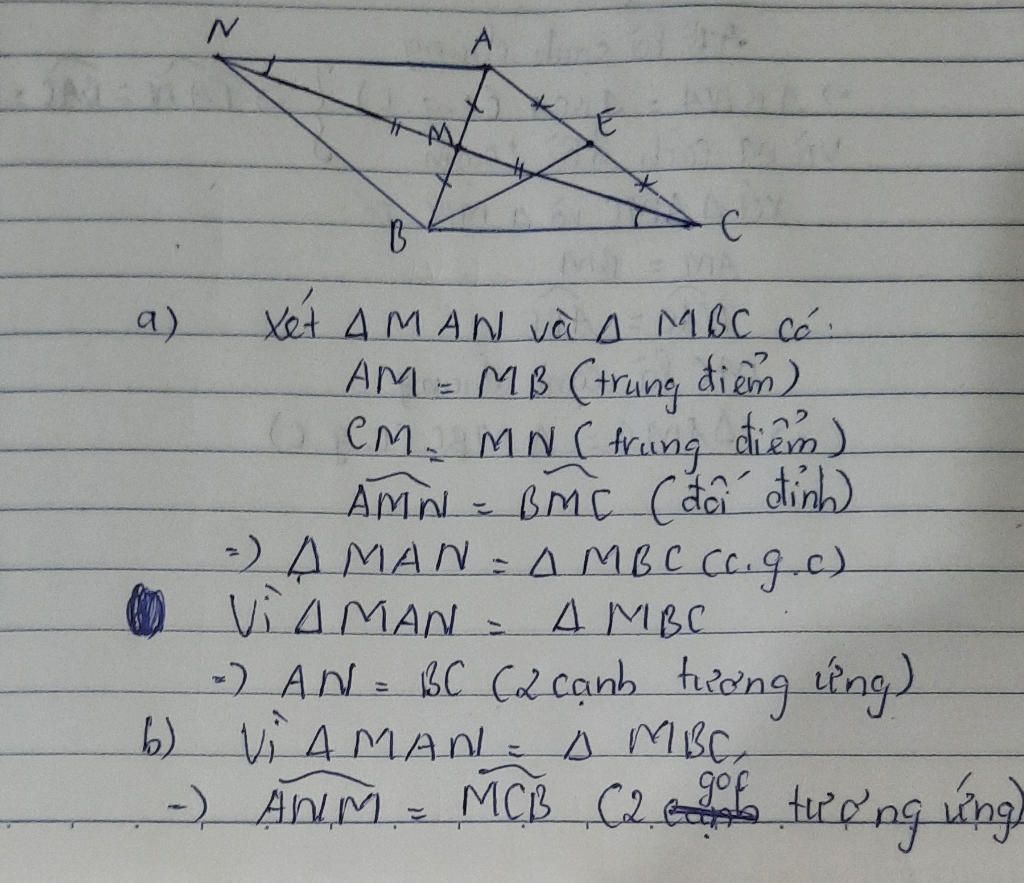 N
A
E
M
B
C
a) Xét Δ MAN và Δ MBC có:
AM = MB (trung điểm)
CM = MN (trung điểm)
\widehat{AMN} = \widehat{BMC} (đối đỉnh)
=) Δ MAN = Δ MBC (c.g.c)
Vì Δ MAN = Δ MBC
=) AN = BC (2 cạnh tương ứng)
b) Vì Δ MAN = Δ MBC,
=) \widehat{ANM} = \widehat{MCB} (2 góc tương ứng)